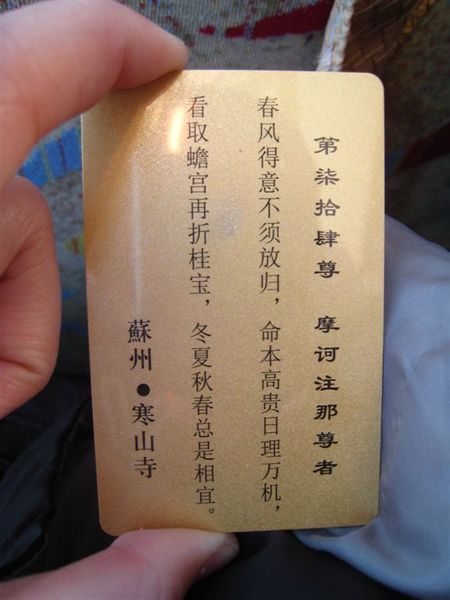 第柒拾肆尊 摩诃注那尊者
春风得意不须放归，命本高贵日理万机，
看取蟾宫再折桂宝，冬夏秋春总是相宜。
蘇州●寒山寺